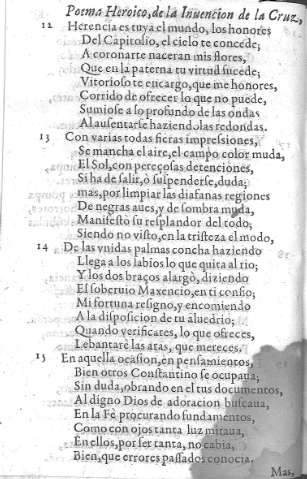 Poema Heroico, de la Inuencion de la Cruz,
12 Herencia es tuya el mundo, los honores
Del Capitolio, el cielo te concede;
A coronarte naceran mis flores,
Que en la paterna tu virtud sucede;
Vitorioso te encargo, que me honores,
Corrido de ofrecer lo que no puede,
Sumiose a lo profundo de las ondas
Al ausentarse haziendolas redondas.
13 Con varias todas fieras impressiones,
Se mancha el aire, el campo color muda,
El Sol, con pereçosas detenciones,
Si ha de salir, ò suspenderse, duda;
mas, por limpiar las diafanas regiones
De negras aues, y de sombra muda,
Manifestò su resplandor del todo;
Siendo no visto, en la tristeza el modo,
14 De las vnidas palmas concha haziendo
Llega a los labios lo que quita al rio;
Y los dos braços alargò, diziendo
El soberuio Maxencio, en ti confio;
Mi fortuna resigno, y encomiendo
A la disposicion de tu aluedrio;
Quando verificares, lo que ofreces,
Lebantarè las aras, que mereces.
15 En aquella ocasion, en pensamientos,
Bien otros Constantino se ocupaua;
Sin duda, obrando en el tus documentos,
Al digno Dios de adoracion buscaua,
En la Fè procurando fundamentos,
Como con ojos tanta luz miraua,
En ellos, por ser tanta, no cabia,
Bien, que errores passados conocia.
Mas,